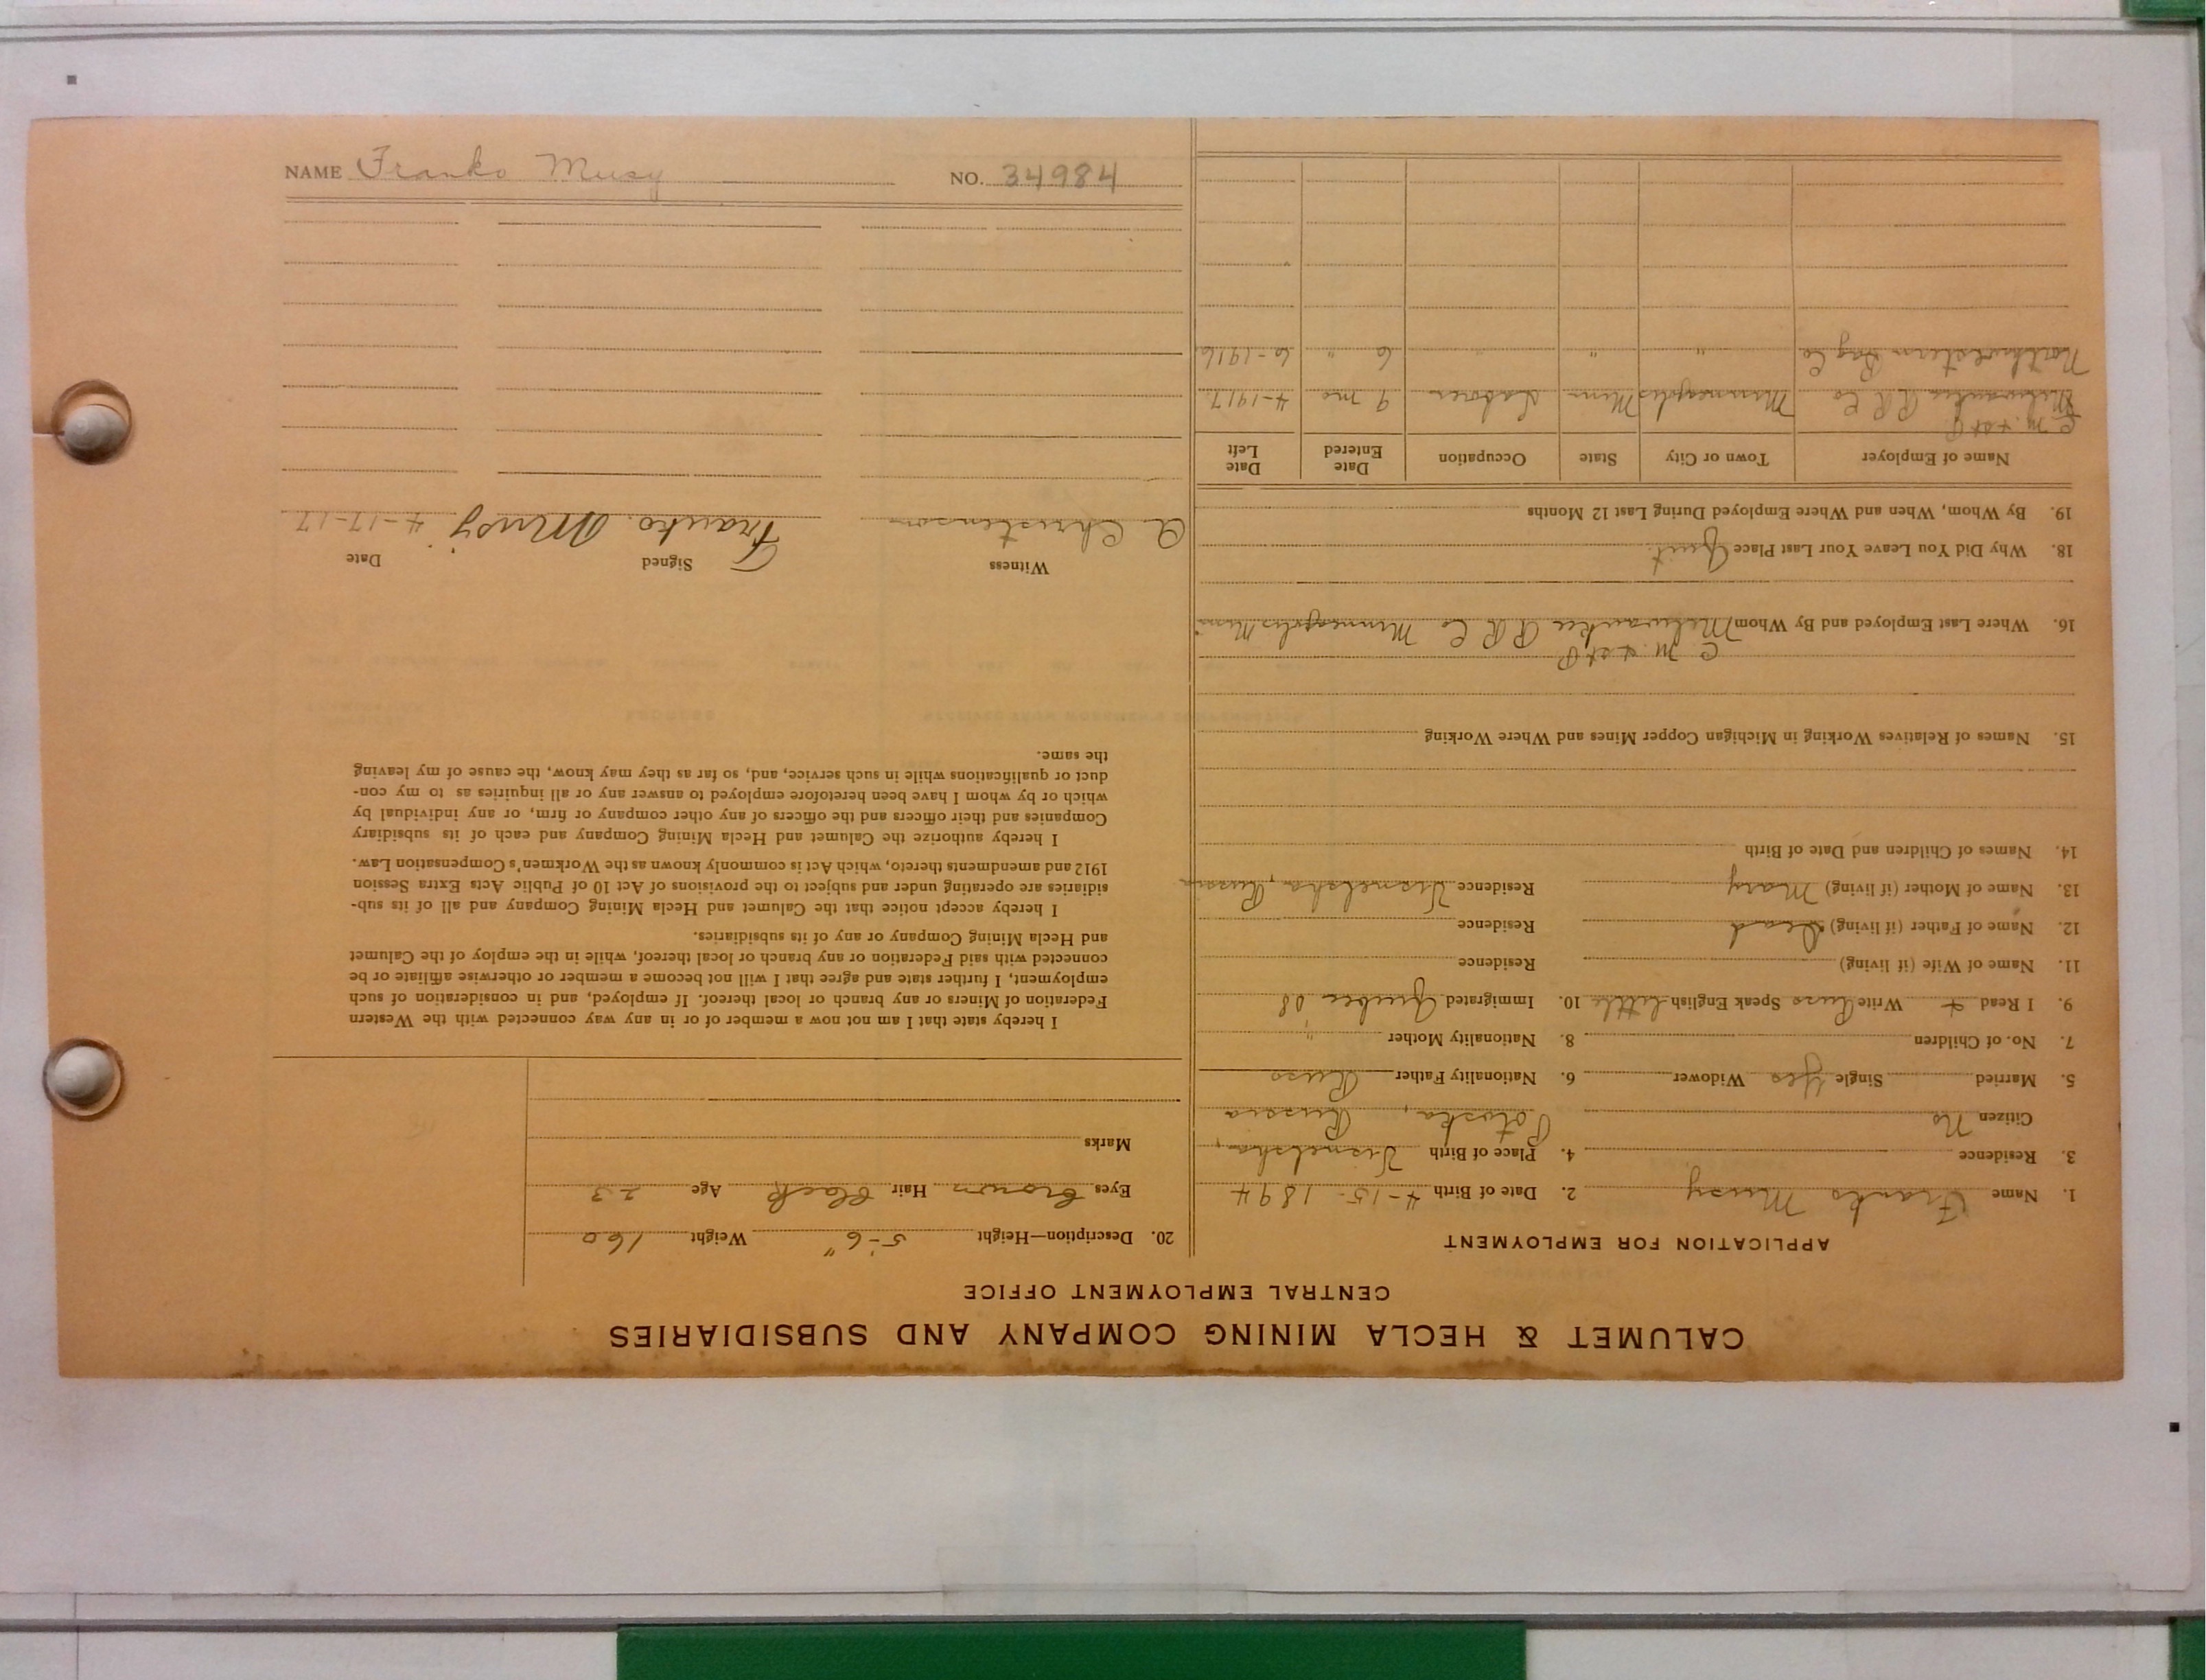 CALUMET & HECLA MINING COMPANY AND SUBSIDIARIES
CENTRAL EMPLOYMENT OFFICE
APPLICATION FOR EMPLOYMENT
1. Name Franko Musy 2. Date of Birth 4-15-1894
3. Residence 4. Place of Birth
Citizen no Russia
5. Married Single Yes Widower 6. Nationality Father Russ
7. No. of Children 8. Nationality Mother "
9. I Read + Write Russ Speak English little 10. Immigrated Quebec 08
11. Name of Wife (if living) Residence
12. Name of Father (if living) Dead Residence
13. Name of Mother (if living) Mary Residence Russia
14. Names of Children and Date of Birth
15. Names of Relatives Working in Michigan Copper Mines and Where Working
C. M. + St P
16. Where Last Employed and By Whom Milwaukee R R Co Minneapolis Minn
18. Why Did You Leave Your Last Place Quit
19. By Whom, When and Where Employed During Last 12 Months
Name of Employer Town or City State Occupation Date Entered Date Left
C. M. + St P
Milwaukee R R Co Minneapolis Minn Laborer 9 mo 4-1917
Northwestern Co " " " 6 " 6-1916
20. Description—Height 5-6" Weight 160
Eyes brown Hair black Age 23
Marks
I hereby state that I am not now a member of or in any way connected with the Western
Federation of Miners or any branch or local thereof. If employed, and in consideration of such
employment, I further state and agree that I will not become a member or otherwise affiliate or be
connected with said Federation or any branch or local thereof, while in the employ of the Calumet
and Hecla Mining Company or any of its subsidiaries.
I hereby accept notice that the Calumet and Hecla Mining Company and all of its sub-
sidiaries are operating under and subject to the provisions of Act 10 of Public Acts Extra Session
1912 and amendments thereto, which Act is commonly known as the Workmen's Compensation Law.
I hereby authorize the Calumet and Hecla Mining Company and each of its subsidiary
Companies and their officers and the officers of any other company or firm, or any individual by
which or by whom I have been heretofore employed to answer any or all inquiries as to my con-
duct or qualifications while in such service, and, so far as they may know, the cause of my leaving
the same.
Witness Signed Date
A Christenson Franko Musy 4-17-17
NAME Franko Musy NO. 34984